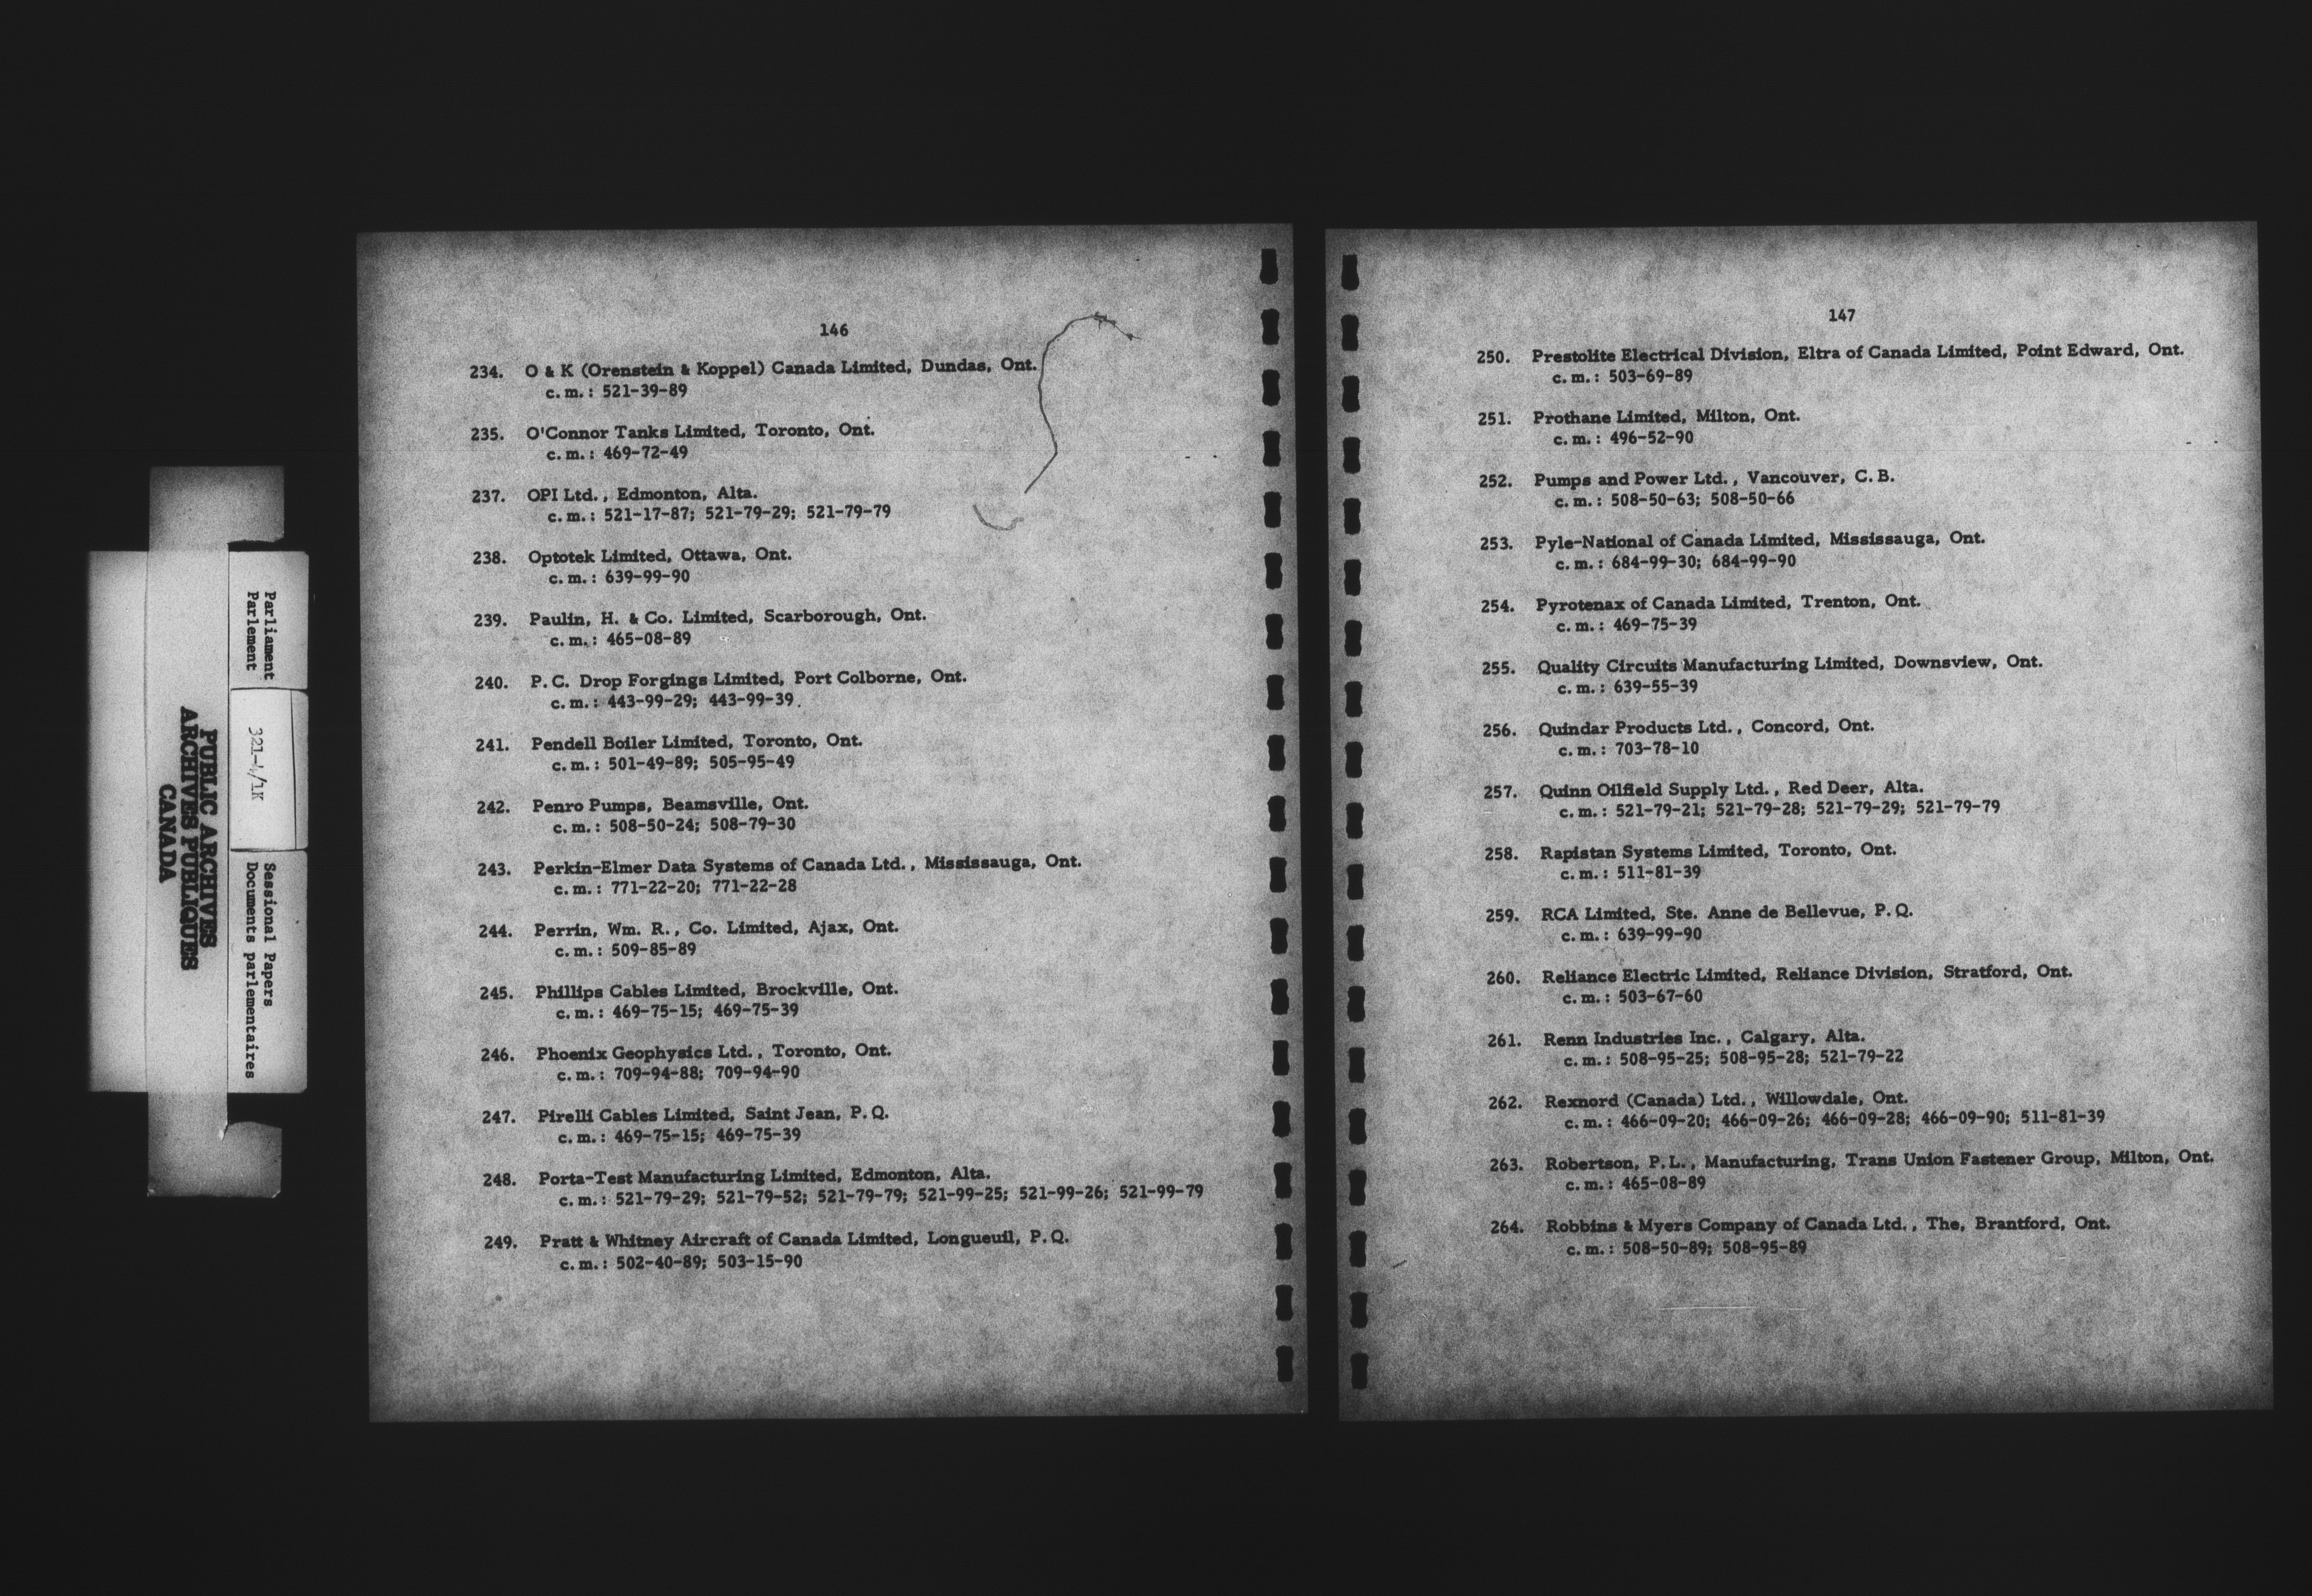 PUBLIC ARCHIVES
ARCHIVES PUBLIQUES
CANADA
Parliament
Parlement
321-4/1K
Sessional Papers
Documents parlementaires
146
234. O & K (Orenstein & Koppel) Canada Limited, Dundas, Ont.
c.m.: 521-39-89
235. O'Connor Tanks Limited, Toronto, Ont.
c.m.: 469-72-49
237. OPI Ltd., Edmonton, Alta.
c.m.: 521-17-87; 521-79-29; 521-79-79
238. Optotek Limited, Ottawa, Ont.
c.m.: 639-99-90
239. Paulin, H. & Co. Limited, Scarborough, Ont.
c.m.: 465-08-89
240. P.C. Drop Forgings Limited, Port Colborne, Ont.
c.m.: 443-99-29; 443-99-39
241. Pendell Boiler Limited, Toronto, Ont.
c.m.: 501-49-89; 505-95-49
242. Penro Pumps, Beamsville, Ont.
c.m.: 508-50-24; 508-79-30
243. Perkin-Elmer Data Systems of Canada Ltd., Mississauga, Ont.
c.m.: 771-22-20; 771-22-28
244. Perrin, Wm. R., Co. Limited, Ajax, Ont.
c.m.: 509-85-89
245. Phillips Cables Limited, Brockville, Ont.
c.m.: 469-75-15; 469-75-39
246. Phoenix Geophysics Ltd., Toronto, Ont.
c.m.: 709-94-88; 709-94-90
247. Pirelli Cables Limited, Saint Jean, P.Q.
c.m.: 469-75-15; 469-75-39
248. Porta-Test Manufacturing Limited, Edmonton, Alta.
c.m.: 521-79-29; 521-79-52; 521-79-79; 521-99-25; 521-99-26; 521-99-79
249. Pratt & Whitney Aircraft of Canada Limited, Longueuil, P.Q.
c.m.: 502-40-89; 503-15-90
147
250. Prestolite Electrical Division, Eltra of Canada Limited, Point Edward, Ont.
c.m.: 503-69-89
251. Prothane Limited, Milton, Ont.
c.m.: 496-52-90
252. Pumps and Power Ltd., Vancouver, C.B.
c.m.: 508-50-63; 508-50-66
253. Pyle-National of Canada Limited, Mississauga, Ont.
c.m.: 684-99-30; 684-99-90
254. Pyrotenax of Canada Limited, Trenton, Ont.
c.m.: 469-75-39
255. Quality Circuits Manufacturing Limited, Downsview, Ont.
c.m.: 639-55-39
256. Quindar Products Ltd., Concord, Ont.
c.m.: 703-78-10
257. Quinn Oilfield Supply Ltd., Red Deer, Alta.
c.m.: 521-79-21; 521-79-28; 521-79-29; 521-79-79
258. Rapistan Systems Limited, Toronto, Ont.
c.m.: 511-81-39
259. RCA Limited, Ste. Anne de Bellevue, P.Q.
c.m.: 639-99-90
260. Reliance Electric Limited, Reliance Division, Stratford, Ont.
c.m.: 503-67-60
261. Renn Industries Inc., Calgary, Alta.
c.m.: 508-95-25; 508-95-28; 521-79-22
262. Rexnord (Canada) Ltd., Willowdale, Ont.
c.m.: 466-09-20; 466-09-26; 466-09-28; 466-09-90; 511-81-39
263. Robertson, P.L., Manufacturing, Trans Union Fastener Group, Milton, Ont.
c.m.: 465-08-89
264. Robbins & Myers Company of Canada Ltd., The, Brantford, Ont.
c.m.: 508-50-89; 508-95-89